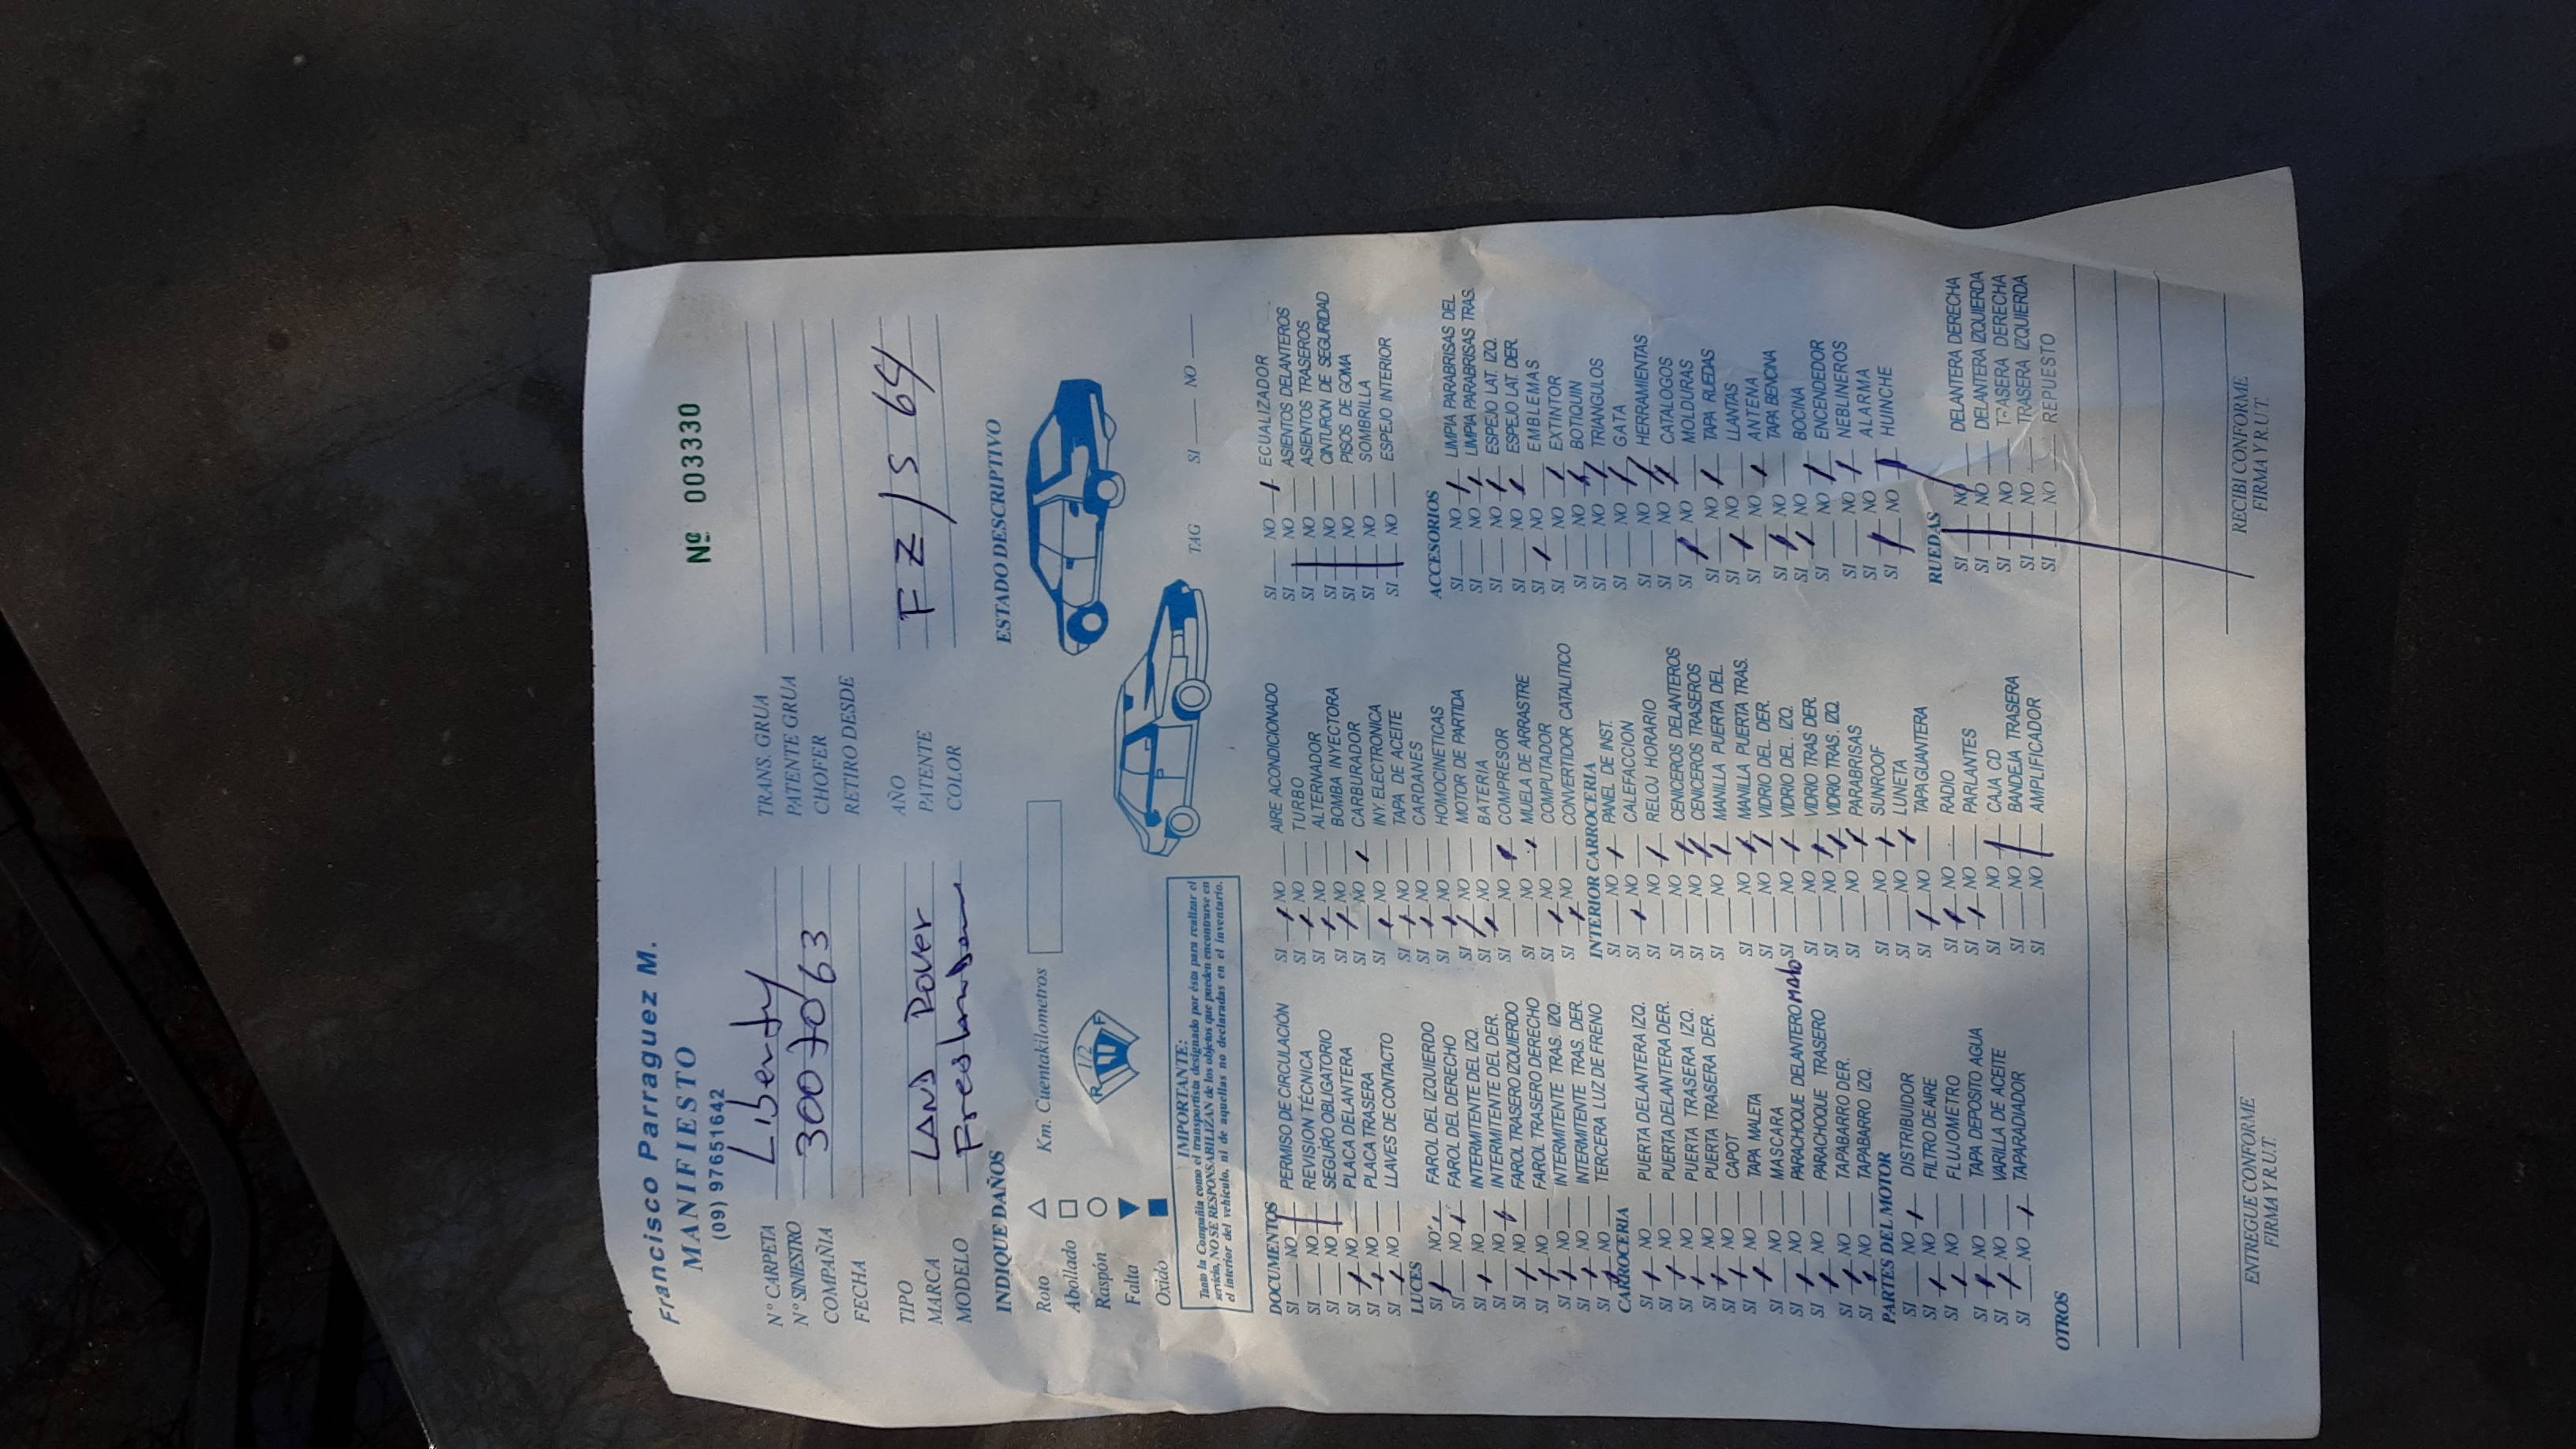 Francisco Parraguez M.
MANIFIESTO
(09) 97651642
Nº 003330
Nº CARPETA Liberty
Nº SINIESTRO 3007063
COMPAÑIA
FECHA
TRANS. GRUA
PATENTE GRUA
CHOFER
RETIRO DESDE
TIPO
MARCA LAND Rover
MODELO
AÑO
PATENTE FZ/S 64
COLOR
INDIQUE DAÑOS
ESTADO DESCRIPTIVO
Roto
Abollado
Raspón
Falta
Oxido
Km. Cuentakilometros
R 1/2 F
TAG SI NO
IMPORTANTE:
Tanto la Compañía como el transportista designado por ésta para realizar el
servicio, NO SE RESPONSABILIZAN de los objetos que pueden encontrarse en
el interior del vehículo, ni de aquellas no declaradas en el inventario.
DOCUMENTOS
SI NO PERMISO DE CIRCULACIÓN
SI NO REVISION TÉCNICA
SI NO SEGURO OBLIGATORIO
SI NO PLACA DELANTERA
SI NO PLACA TRASERA
SI NO LLAVES DE CONTACTO
LUCES
SI NO FAROL DEL IZQUIERDO
SI NO FAROL DEL DERECHO
SI NO INTERMITENTE DEL IZQ.
SI NO INTERMITENTE DEL DER.
SI NO FAROL TRASERO IZQUIERDO
SI NO FAROL TRASERO DERECHO
SI NO INTERMITENTE TRAS. IZQ.
SI NO INTERMITENTE TRAS. DER.
SI NO TERCERA LUZ DE FRENO
CARROCERIA
SI NO PUERTA DELANTERA IZQ.
SI NO PUERTA DELANTERA DER.
SI NO PUERTA TRASERA IZQ.
SI NO PUERTA TRASERA DER.
SI NO CAPOT
SI NO TAPA MALETA
SI NO MASCARA
SI NO PARACHOQUE DELANTERO MALO
SI NO PARACHOQUE TRASERO
SI NO TAPABARRO DER.
SI NO TAPABARRO IZQ.
PARTES DEL MOTOR
SI NO DISTRIBUIDOR
SI NO FILTRO DE AIRE
SI NO FLUJOMETRO
SI NO TAPA DEPOSITO AGUA
SI NO VARILLA DE ACEITE
SI NO TAPARADIADOR
SI NO AIRE ACONDICIONADO
SI NO TURBO
SI NO ALTERNADOR
SI NO BOMBA INYECTORA
SI NO CARBURADOR
SI NO INY. ELECTRONICA
SI NO TAPA DE ACEITE
SI NO CARDANES
SI NO HOMOCINETICAS
SI NO MOTOR DE PARTIDA
SI NO BATERIA
SI NO COMPRESOR
SI NO MUELA DE ARRASTRE
SI NO COMPUTADOR
SI NO CONVERTIDOR CATALITICO
INTERIOR CARROCERIA
SI NO PANEL DE INST.
SI NO CALEFACCION
SI NO RELOJ HORARIO
SI NO CENICEROS DELANTEROS
SI NO CENICEROS TRASEROS
SI NO MANILLA PUERTA DEL.
SI NO MANILLA PUERTA TRAS.
SI NO VIDRIO DEL. DER.
SI NO VIDRIO DEL. IZQ.
SI NO VIDRIO TRAS DER.
SI NO VIDRIO TRAS. IZQ.
SI NO PARABRISAS
SI NO SUNROOF
SI NO LUNETA
SI NO TAPA GUANTERA
SI NO RADIO
SI NO PARLANTES
SI NO CAJA CD
SI NO BANDEJA TRASERA
SI NO AMPLIFICADOR
SI NO ECUALIZADOR
SI NO ASIENTOS DELANTEROS
SI NO ASIENTOS TRASEROS
SI NO CINTURON DE SEGURIDAD
SI NO PISOS DE GOMA
SI NO SOMBRILLA
SI NO ESPEJO INTERIOR
ACCESORIOS
SI NO LIMPIA PARABRISAS DEL.
SI NO LIMPIA PARABRISAS TRAS.
SI NO ESPEJO LAT. IZQ.
SI NO ESPEJO LAT. DER.
SI NO EMBLEMAS
SI NO EXTINTOR
SI NO BOTIQUIN
SI NO TRIANGULOS
SI NO GATA
SI NO HERRAMIENTAS
SI NO CATALOGOS
SI NO MOLDURAS
SI NO TAPA RUEDAS
SI NO LLANTAS
SI NO ANTENA
SI NO TAPA BENCINA
SI NO BOCINA
SI NO ENCENDEDOR
SI NO NEBLINEROS
SI NO ALARMA
SI NO HUINCHE
RUEDAS
SI NO DELANTERA DERECHA
SI NO DELANTERA IZQUIERDA
SI NO TRASERA DERECHA
SI NO TRASERA IZQUIERDA
SI NO REPUESTO
OTROS
ENTREGUE CONFORME
FIRMA Y R.U.T.
RECIBI CONFORME
FIRMA Y R.U.T.